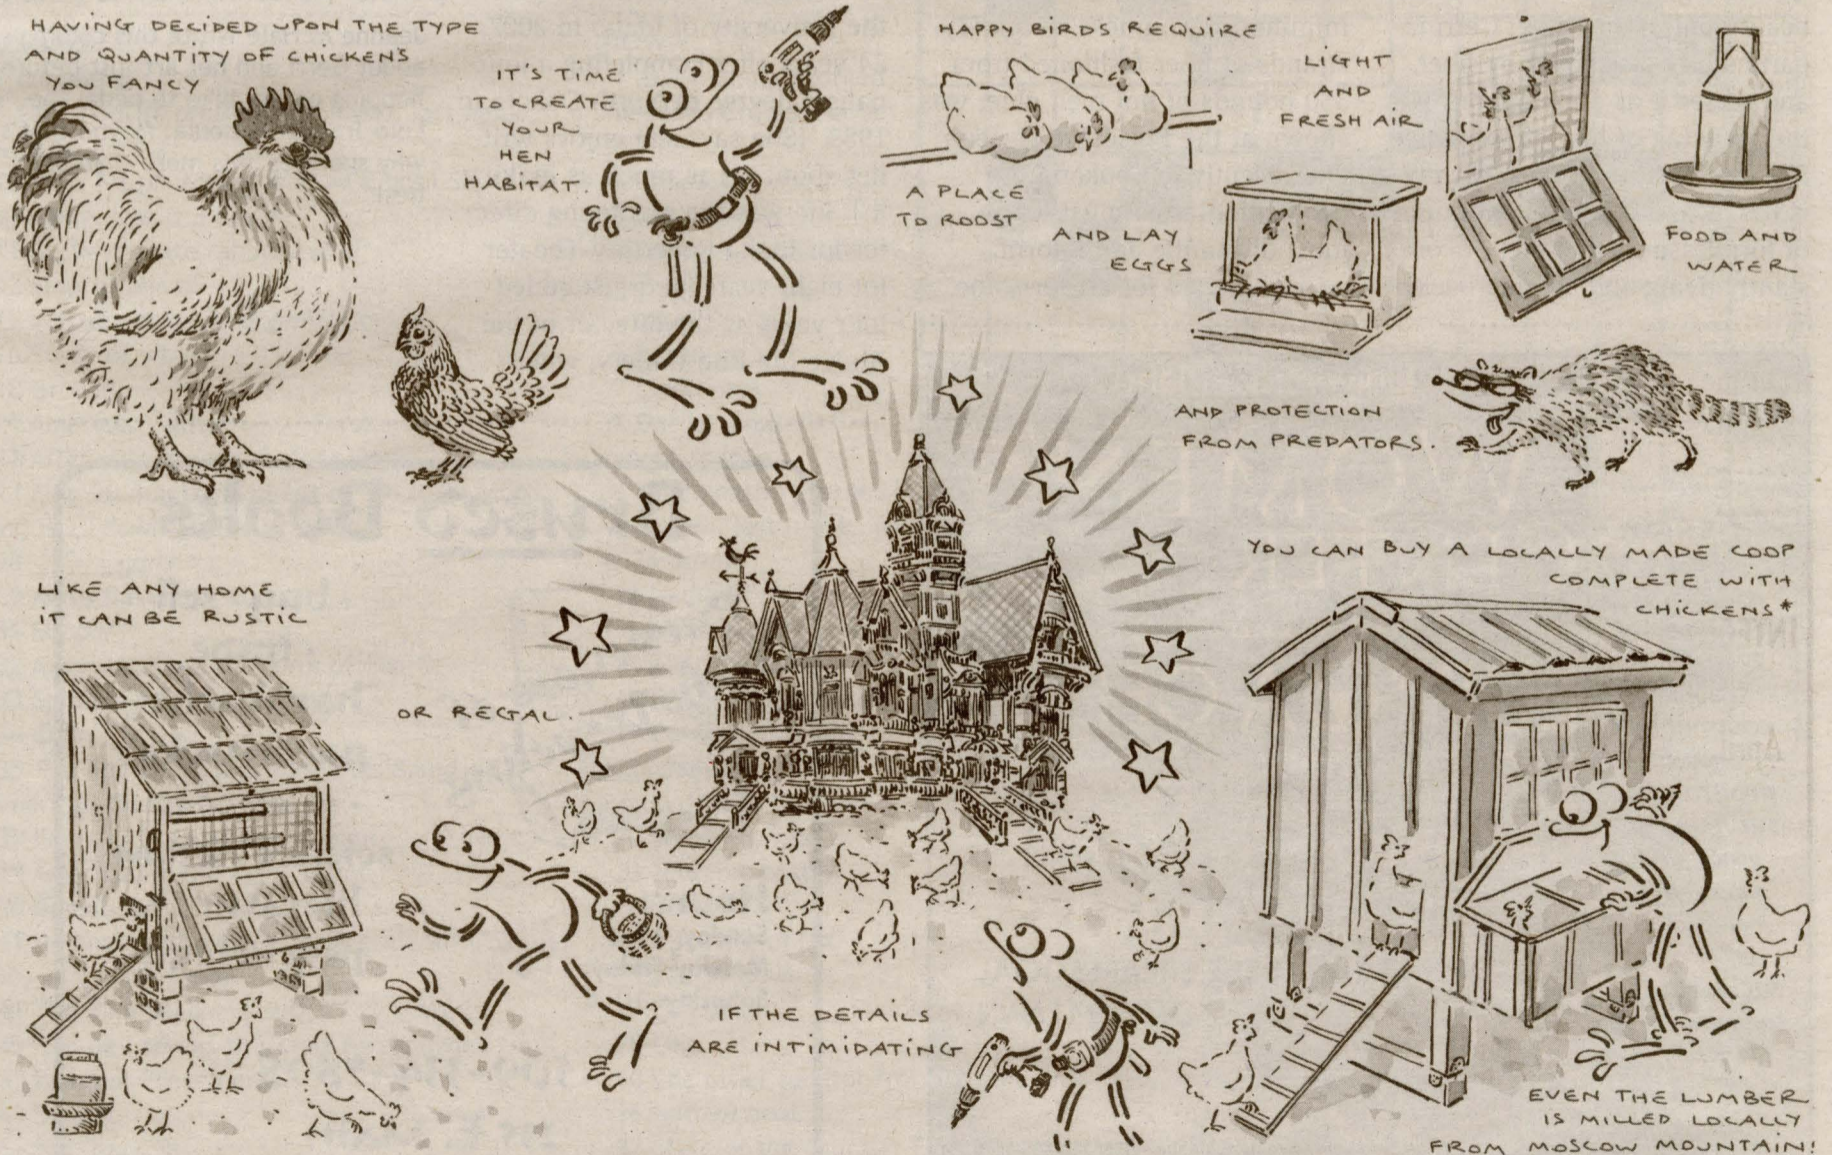 HAVING DECIDED UPON THE TYPE
AND QUANTITY OF CHICKENS
YOU FANCY
IT'S TIME
TO CREATE
YOUR
HEN
HABITAT.
HAPPY BIRDS REQUIRE
A PLACE
TO ROOST
AND LAY
EGGS
LIGHT
AND
FRESH AIR
FOOD AND
WATER
AND PROTECTION
FROM PREDATORS.
LIKE ANY HOME
IT CAN BE RUSTIC
OR REGAL.
IF THE DETAILS
ARE INTIMIDATING
YOU CAN BUY A LOCALLY MADE COOP
COMPLETE WITH
CHICKENS*
EVEN THE LUMBER
IS MILLED LOCALLY
FROM MOSCOW MOUNTAIN!